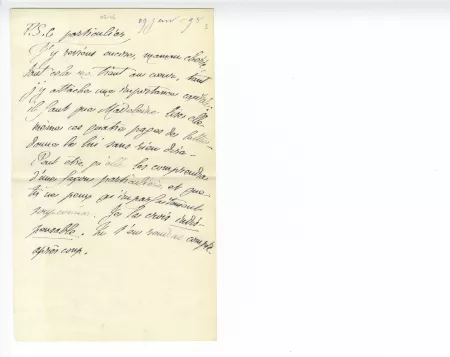 29 janv - 95
P.S. & particulier,
J'y reviens encore, maman chérie,
tout cela me tient au cœur, tant
j'y attache une importance capitale.
il faut que Madeleine lise elle-
même ces quatre pages de lettre.
donne la lui sans rien dire.
Peut être qu'elle les comprendra
d'une façon particulière, et que
tu ne peux qu'imparfaitement
Je la crois indis-
pensable. Tu t'en rendras compte
après coup.